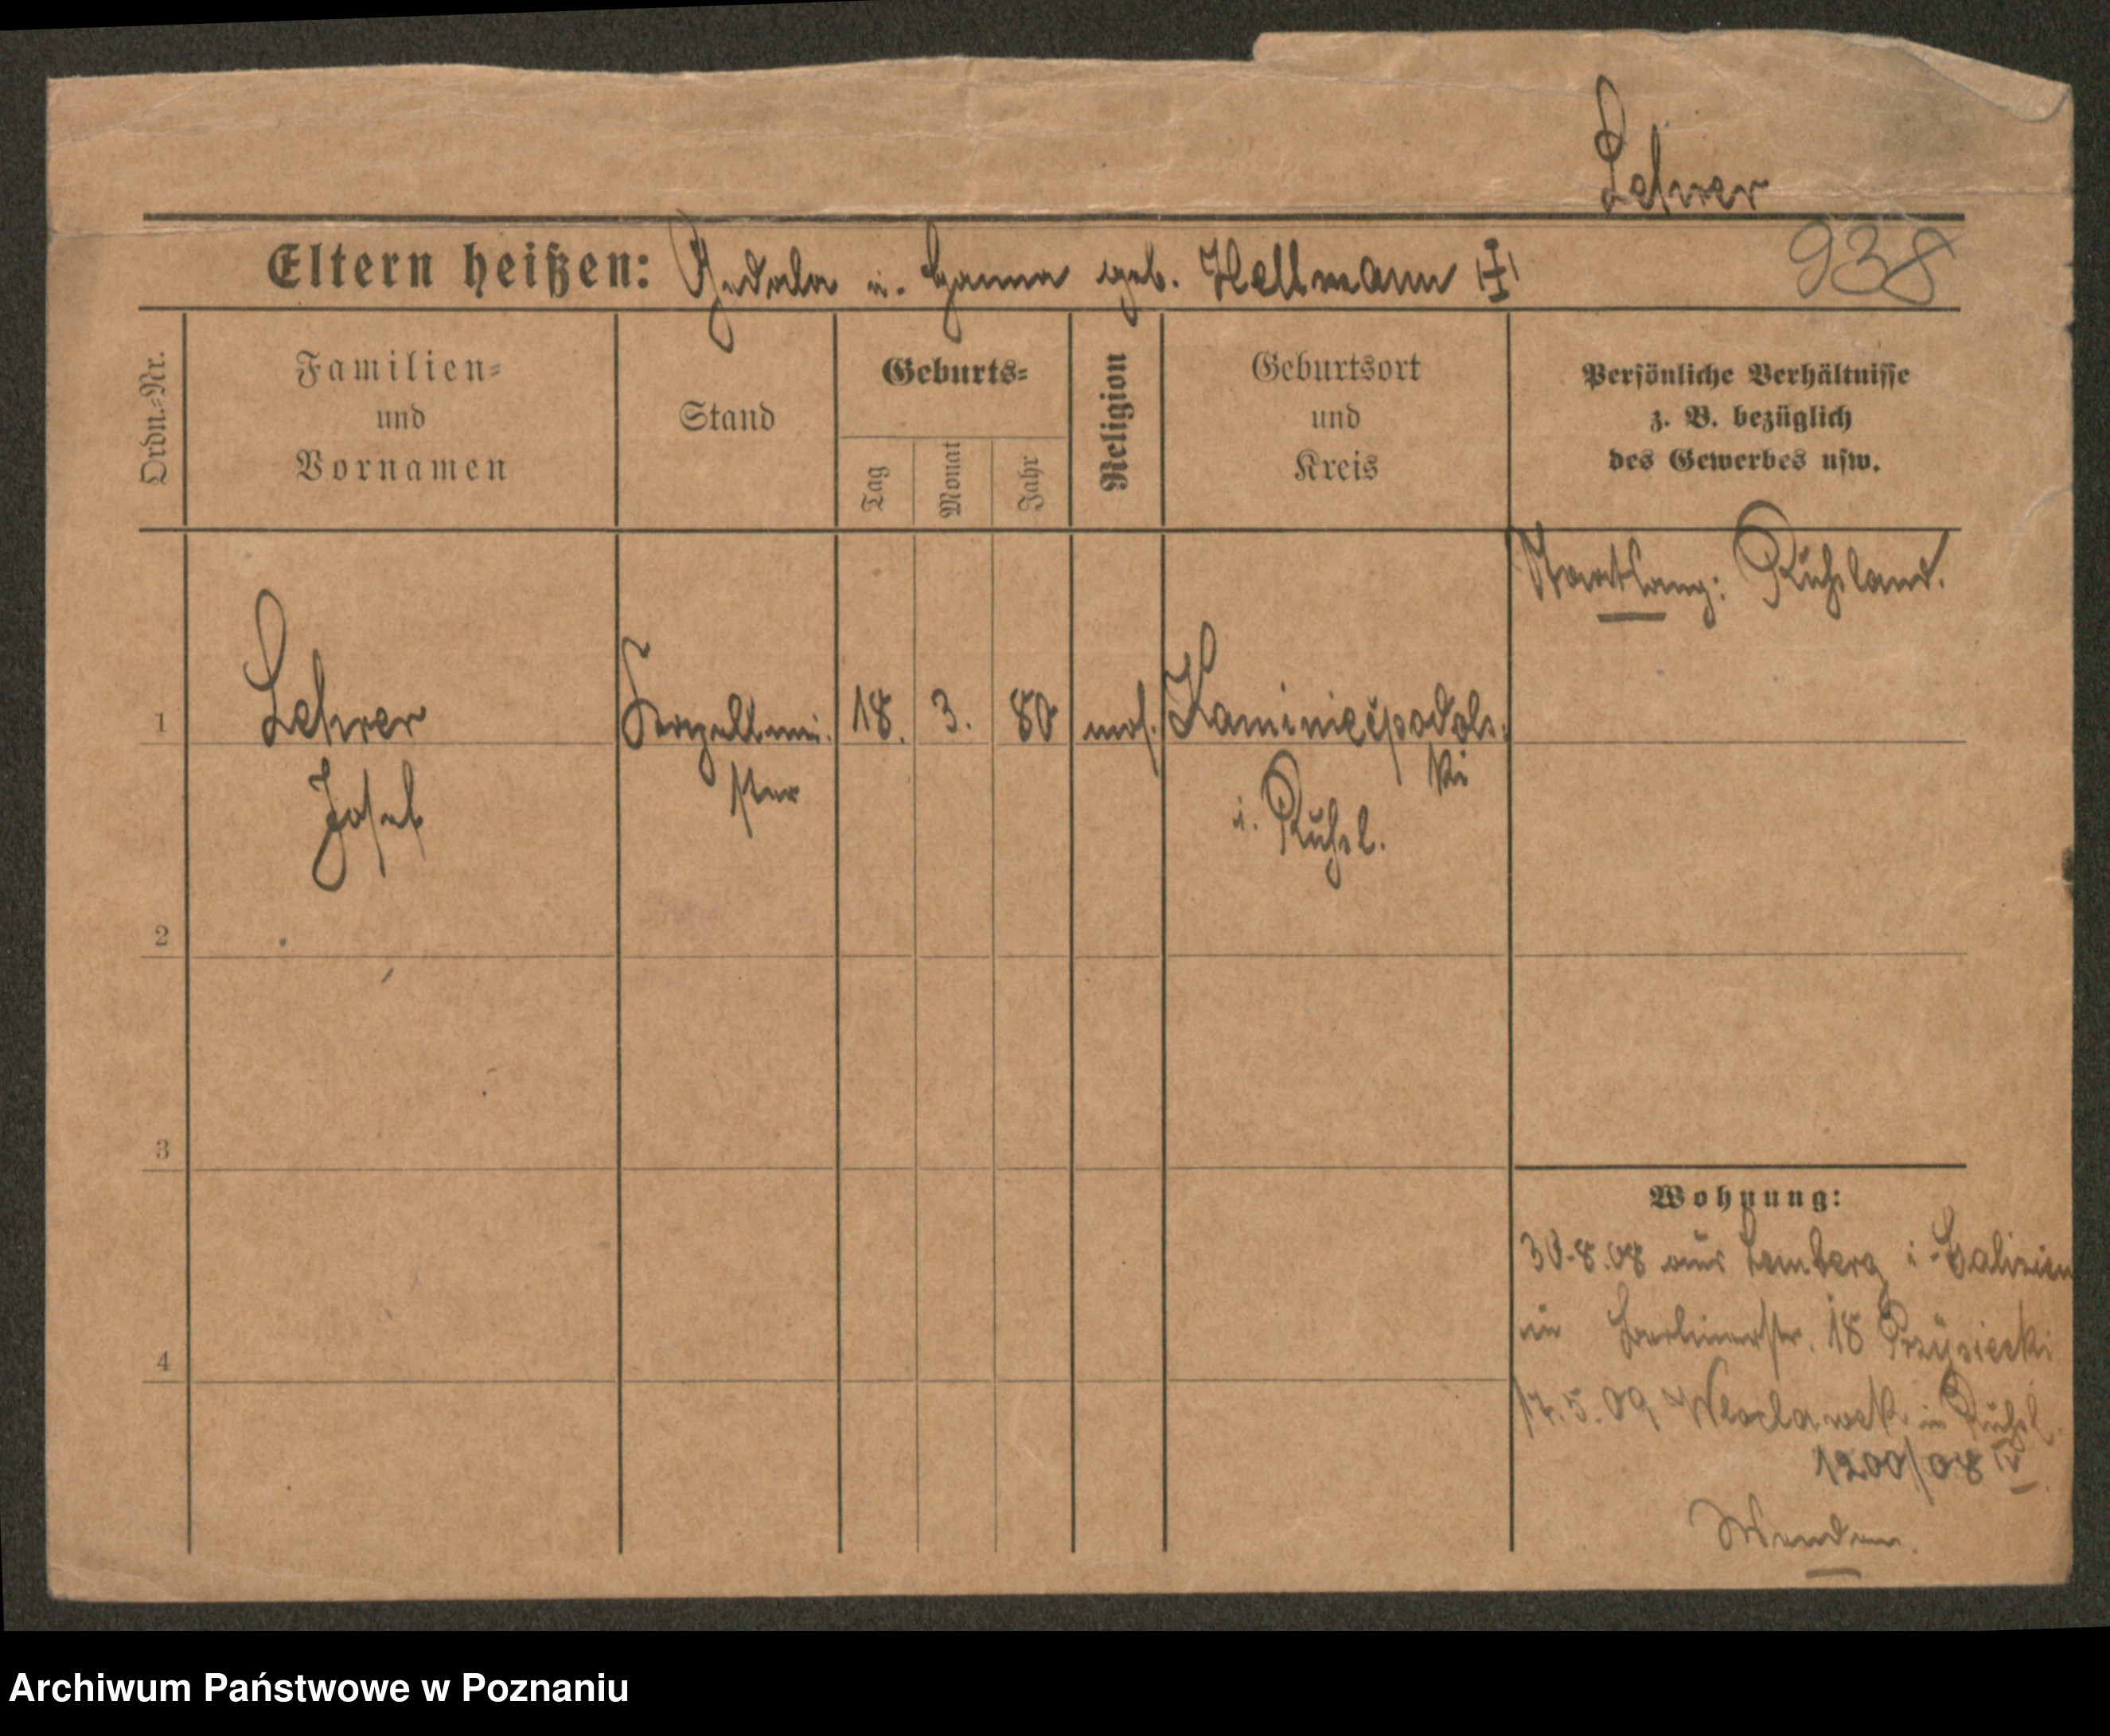 Lehrer
Eltern heißen: Gedala u. Hanna geb. Hellmann
938
Ordn.=Nr.
Familien=
und
Vornamen
Stand
Geburts=
Tag
Monat
Jahr
Religion
Geburtsort
und
Kreis
Persönliche Verhältnisse
z. B. bezüglich
des Gewerbes usw.
Staatsang: Rußland.
1
Lehrer
Kapellmei.
18.
3.
80
mos.
Kaminiecpodols
ster
ki
Josef
i. Rußl.
2
3
4
Wohnung:
30.8.08 aus Lemberg i Galizien
in Berlinerstr. 18
17.5.09 Wloclawek in Rußl.
1200/08 IV
Wenden.
Archiwum Państwowe w Poznaniu